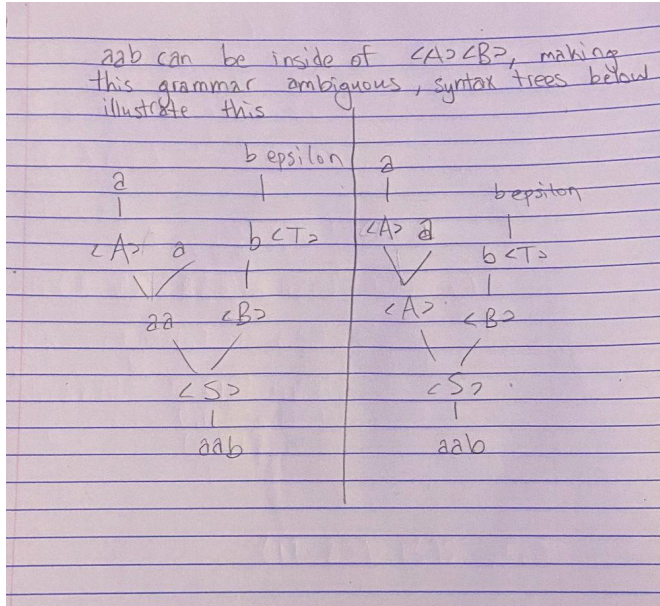 aab can be inside of <A><B>, making
this grammar ambiguous, syntax trees below
illustrate this
b epsilon
a
<A> a
b<T>
aa
<B>
<S>
aab
a
b epsilon
<A> a
b<T>
<A>
<B>
<S>
aab